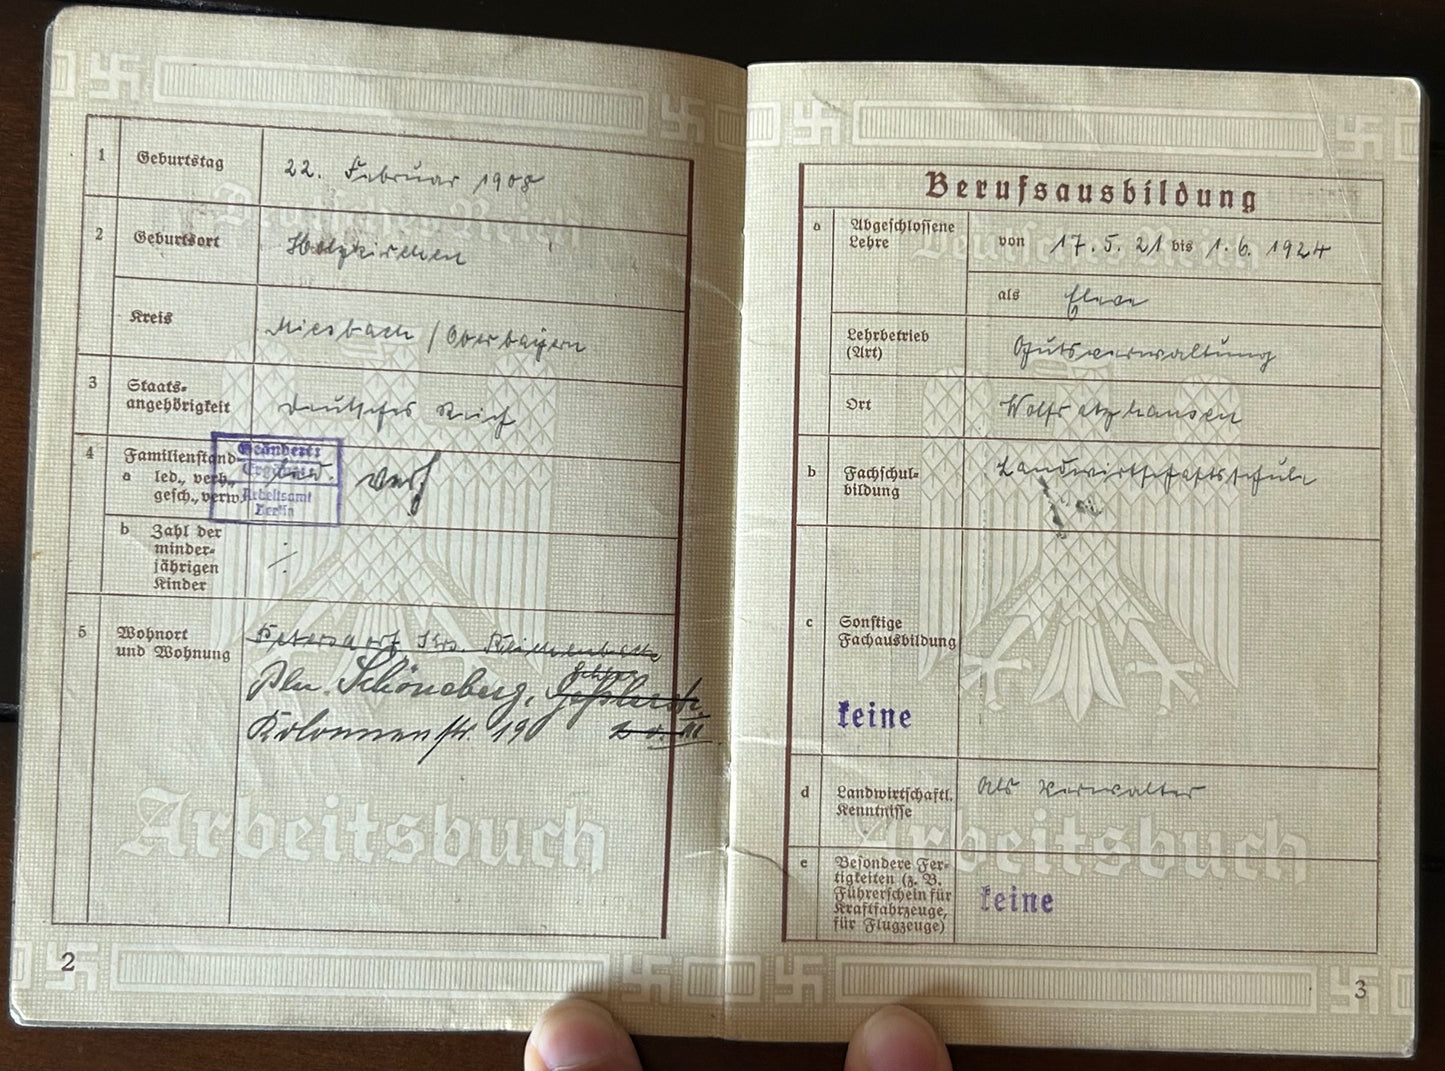 1 Geburtstag 22. Februar 1908
2 Geburtsort Holzkirchen
Kreis Miesbach / Oberbayern
3 Staats-
angehörigkeit Deutsches Reich
4 Familienstand
a led., verh.,
gesch., verw.
Geändert:
Arbeitsamt
Berlin
verh
b Zahl der
minder-
jährigen
Kinder ./.
5 Wohnort
und Wohnung
Petersdorf Krs.
Bln. Schöneberg, Geßlerstr.
Kolonnenstr. 19
Deutsches Reich
Arbeitsbuch
2
Berufsausbildung
a Abgeschlossene
Lehre
von 17. 5. 21 bis 1. 6. 1924
als Eleve
Lehrbetrieb
(Art) Gutsverwaltung
Ort Wolfratzhausen
b Fachschul-
bildung Landwirtschaftsschule
c Sonstige
Fachausbildung
keine
d Landwirtschaftl.
Kenntnisse als Verwalter
e Besondere Fer-
tigkeiten (z. B.
Führerschein für
Kraftfahrzeuge,
für Flugzeuge)
keine
Deutsches Reich
Arbeitsbuch
3